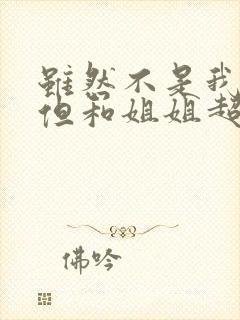 虽然不是我
但和姐姐超
佛吟